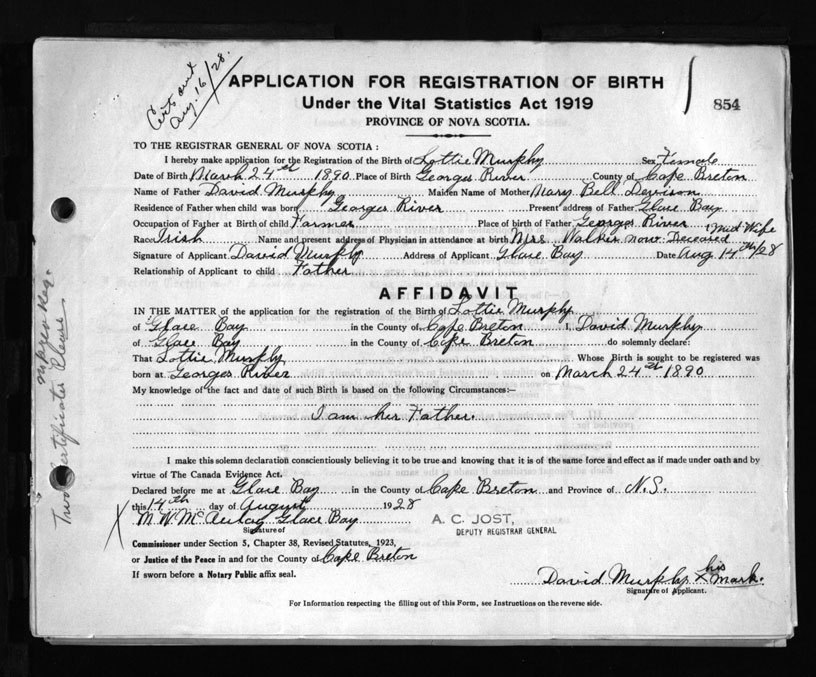 Certs out
Aug. 16/28.
APPLICATION FOR REGISTRATION OF BIRTH
Under the Vital Statistics Act 1919
PROVINCE OF NOVA SCOTIA.
854
TO THE REGISTRAR GENERAL OF NOVA SCOTIA:
I hereby make application for the Registration of the Birth of Lottie Murphy Sex Female
Date of Birth March 24th 1890 Place of Birth Georges River County of Cape Breton
Name of Father David Murphy Maiden Name of Mother Mary Bell
Residence of Father when child was born Georges River Present address of Father Glace Bay
Occupation of Father at Birth of child Farmer Place of birth of Father Georges River
Race Irish Name and present address of Physician in attendance at birth Mrs Walker now Deceased Mid Wife
Signature of Applicant David Murphy Address of Applicant Glace Bay Date Aug 14th/28
Relationship of Applicant to child Father
AFFIDAVIT
IN THE MATTER of the application for the registration of the Birth of Lottie Murphy
of Glace Bay in the County of Cape Breton I, David Murphy
of Glace Bay in the County of Cape Breton do solemnly declare:
That Lottie Murphy Whose Birth is sought to be registered was
born at Georges River on March 24th 1890
My knowledge of the fact and date of such Birth is based on the following Circumstances:—
I am her Father.
I make this solemn declaration conscientiously believing it to be true and knowing that it is of the same force and effect as if made under oath and by
virtue of The Canada Evidence Act.
Declared before me at Glace Bay in the County of Cape Breton and Province of N.S.
this 14th day of August 1928
M. W. McAulay Glace Bay
Signature of
A. C. JOST,
DEPUTY REGISTRAR GENERAL
Commissioner under Section 5, Chapter 38, Revised Statutes, 1923,
or Justice of the Peace in and for the County of Cape Breton
If sworn before a Notary Public affix seal.
David Murphy his X mark.
Signature of Applicant.
For Information respecting the filling out of this Form, see Instructions on the reverse side.
Two Certificates Please